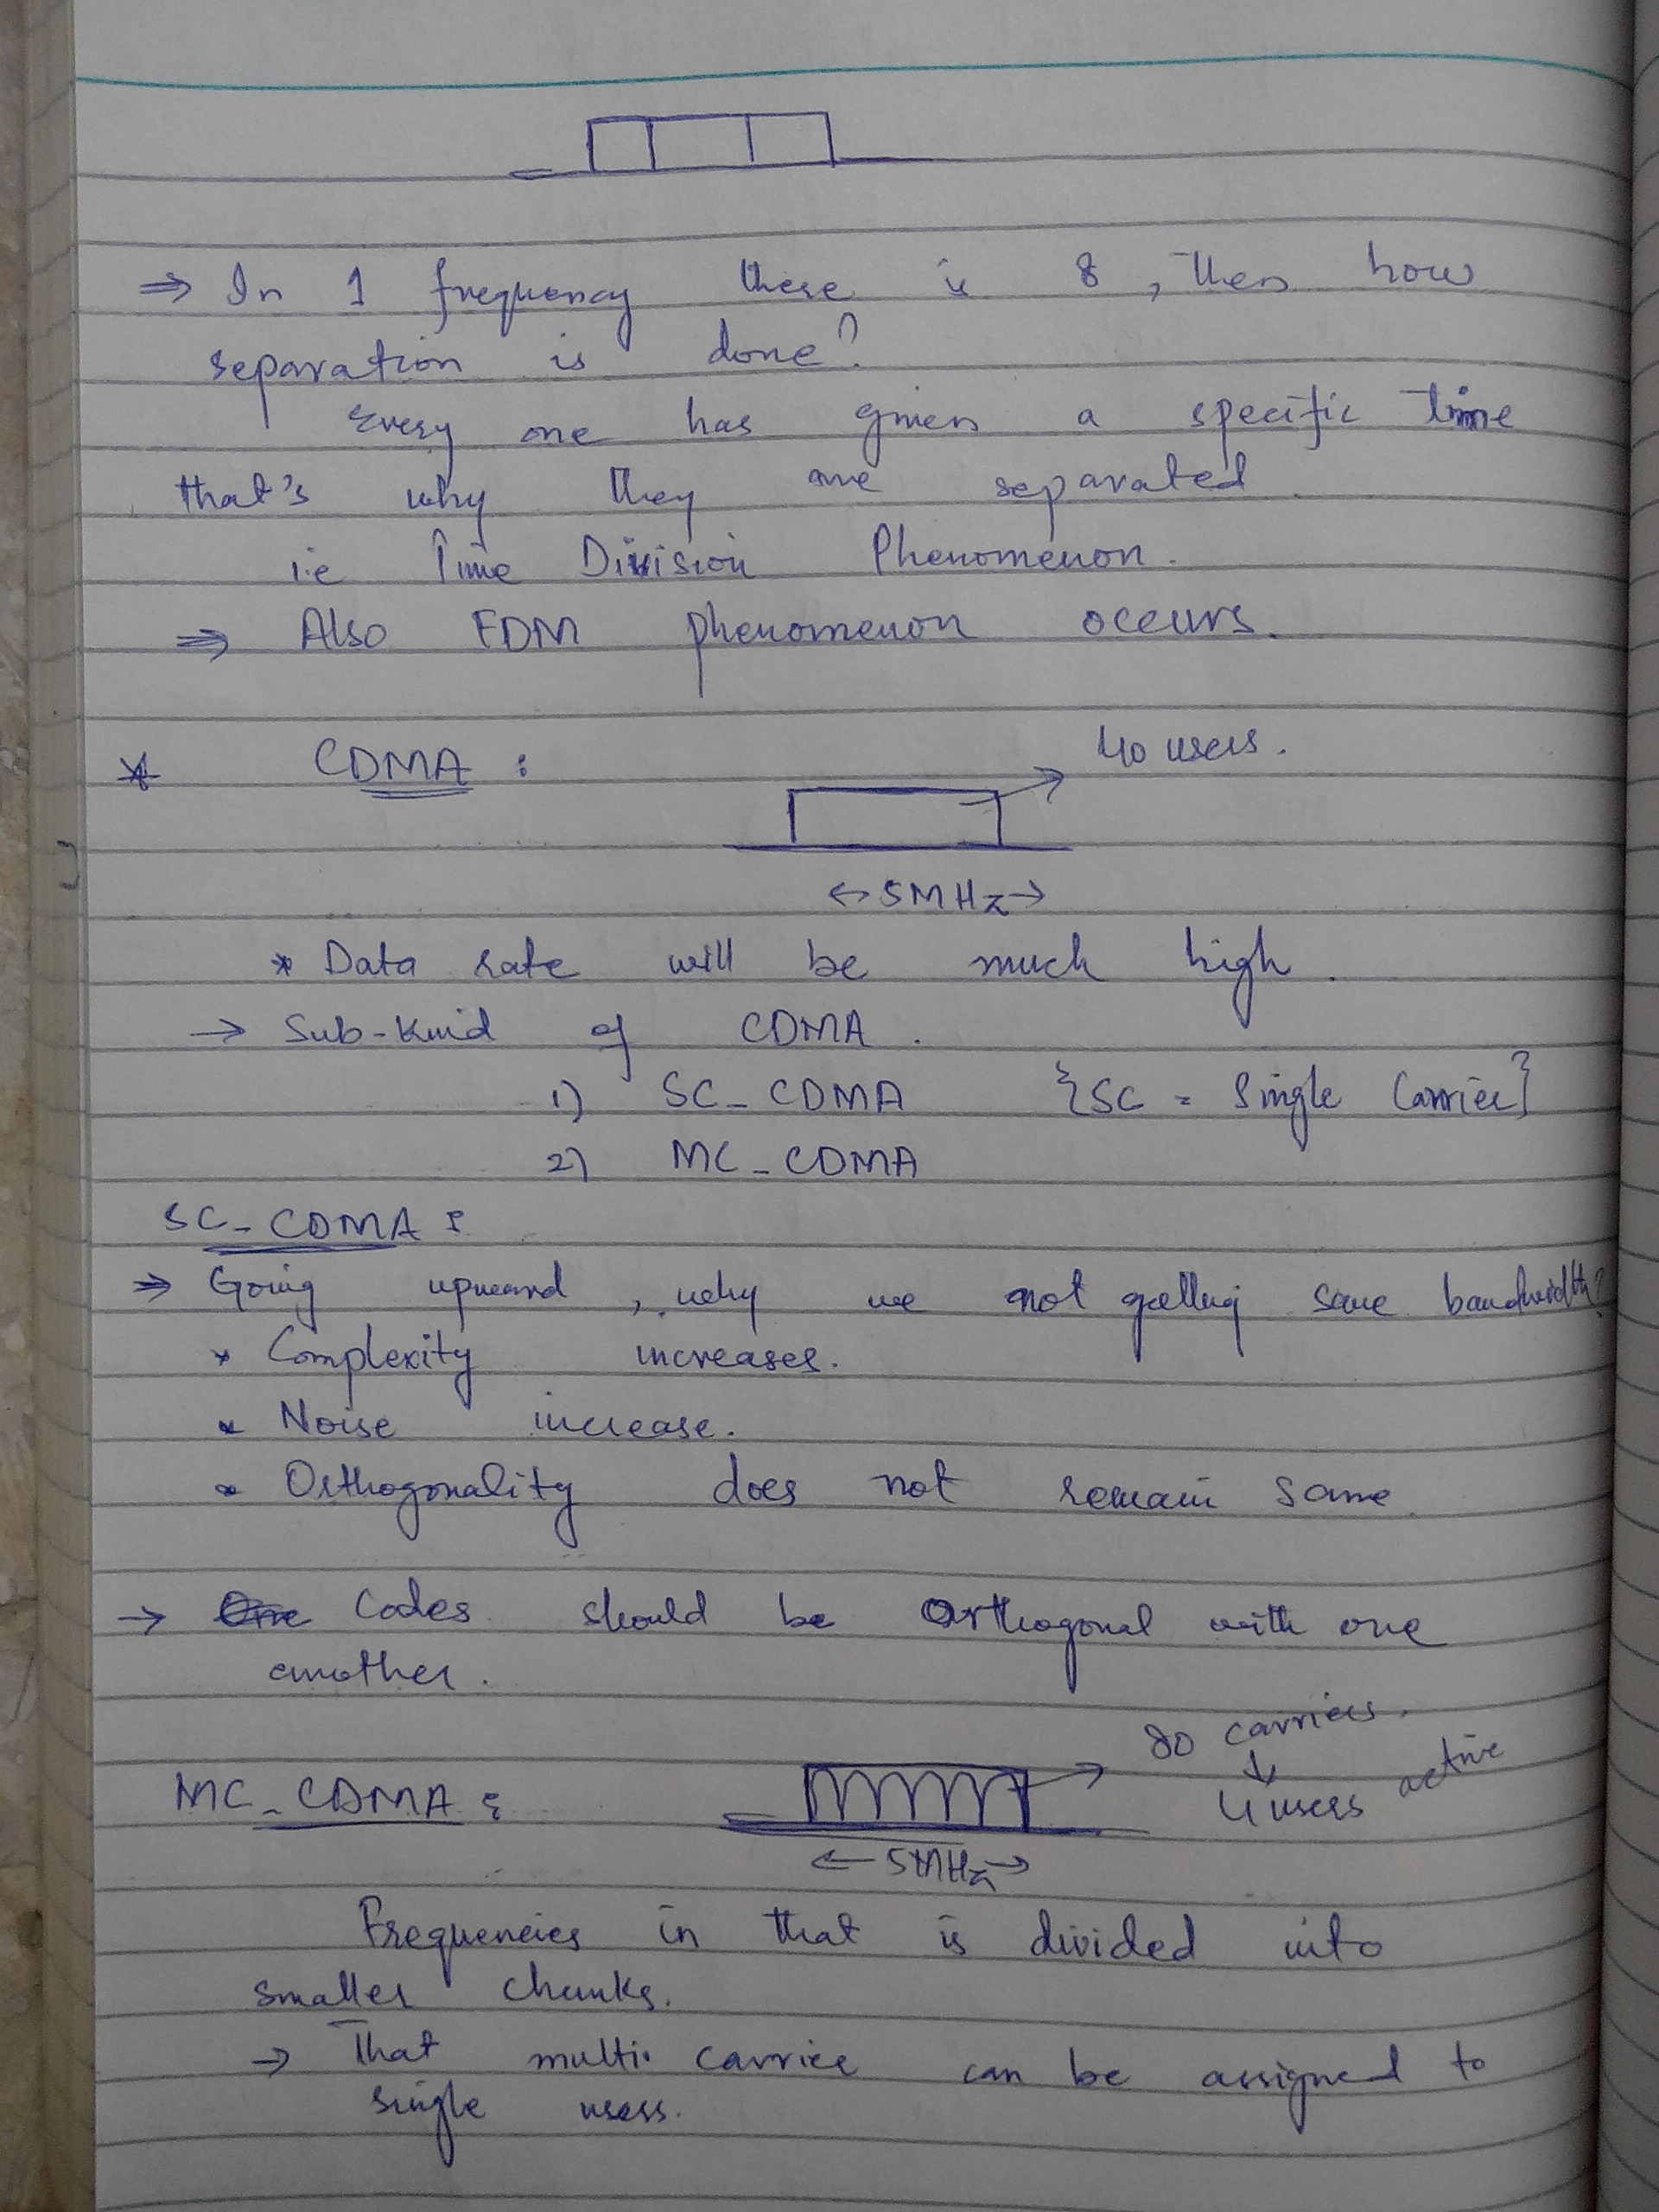 ⇒ In 1 frequency there is 8, then how
separation is done?
Every one has given a specific time
that's why they are separated
i.e Time Division Phenomenon.
⇒ Also FDM phenomenon occurs.
* CDMA :
40 users.
← 5MHz →
* Data rate will be much high.
→ Sub-kind of CDMA.
1) SC_CDMA {SC = Single Carrier}
2) MC_CDMA
SC_CDMA :
⇒ Going upward, why we not getting same bandwidth?
* Complexity increases.
* Noise increase.
* Orthogonality does not remain same.
→ Codes should be Orthogonal with one
another.
80 carriers.
↓
4 users active
MC_CDMA :
← 5MHz →
Frequencies in that is divided into
smaller chunks.
→ That multi carrier can be assigned to
single users.